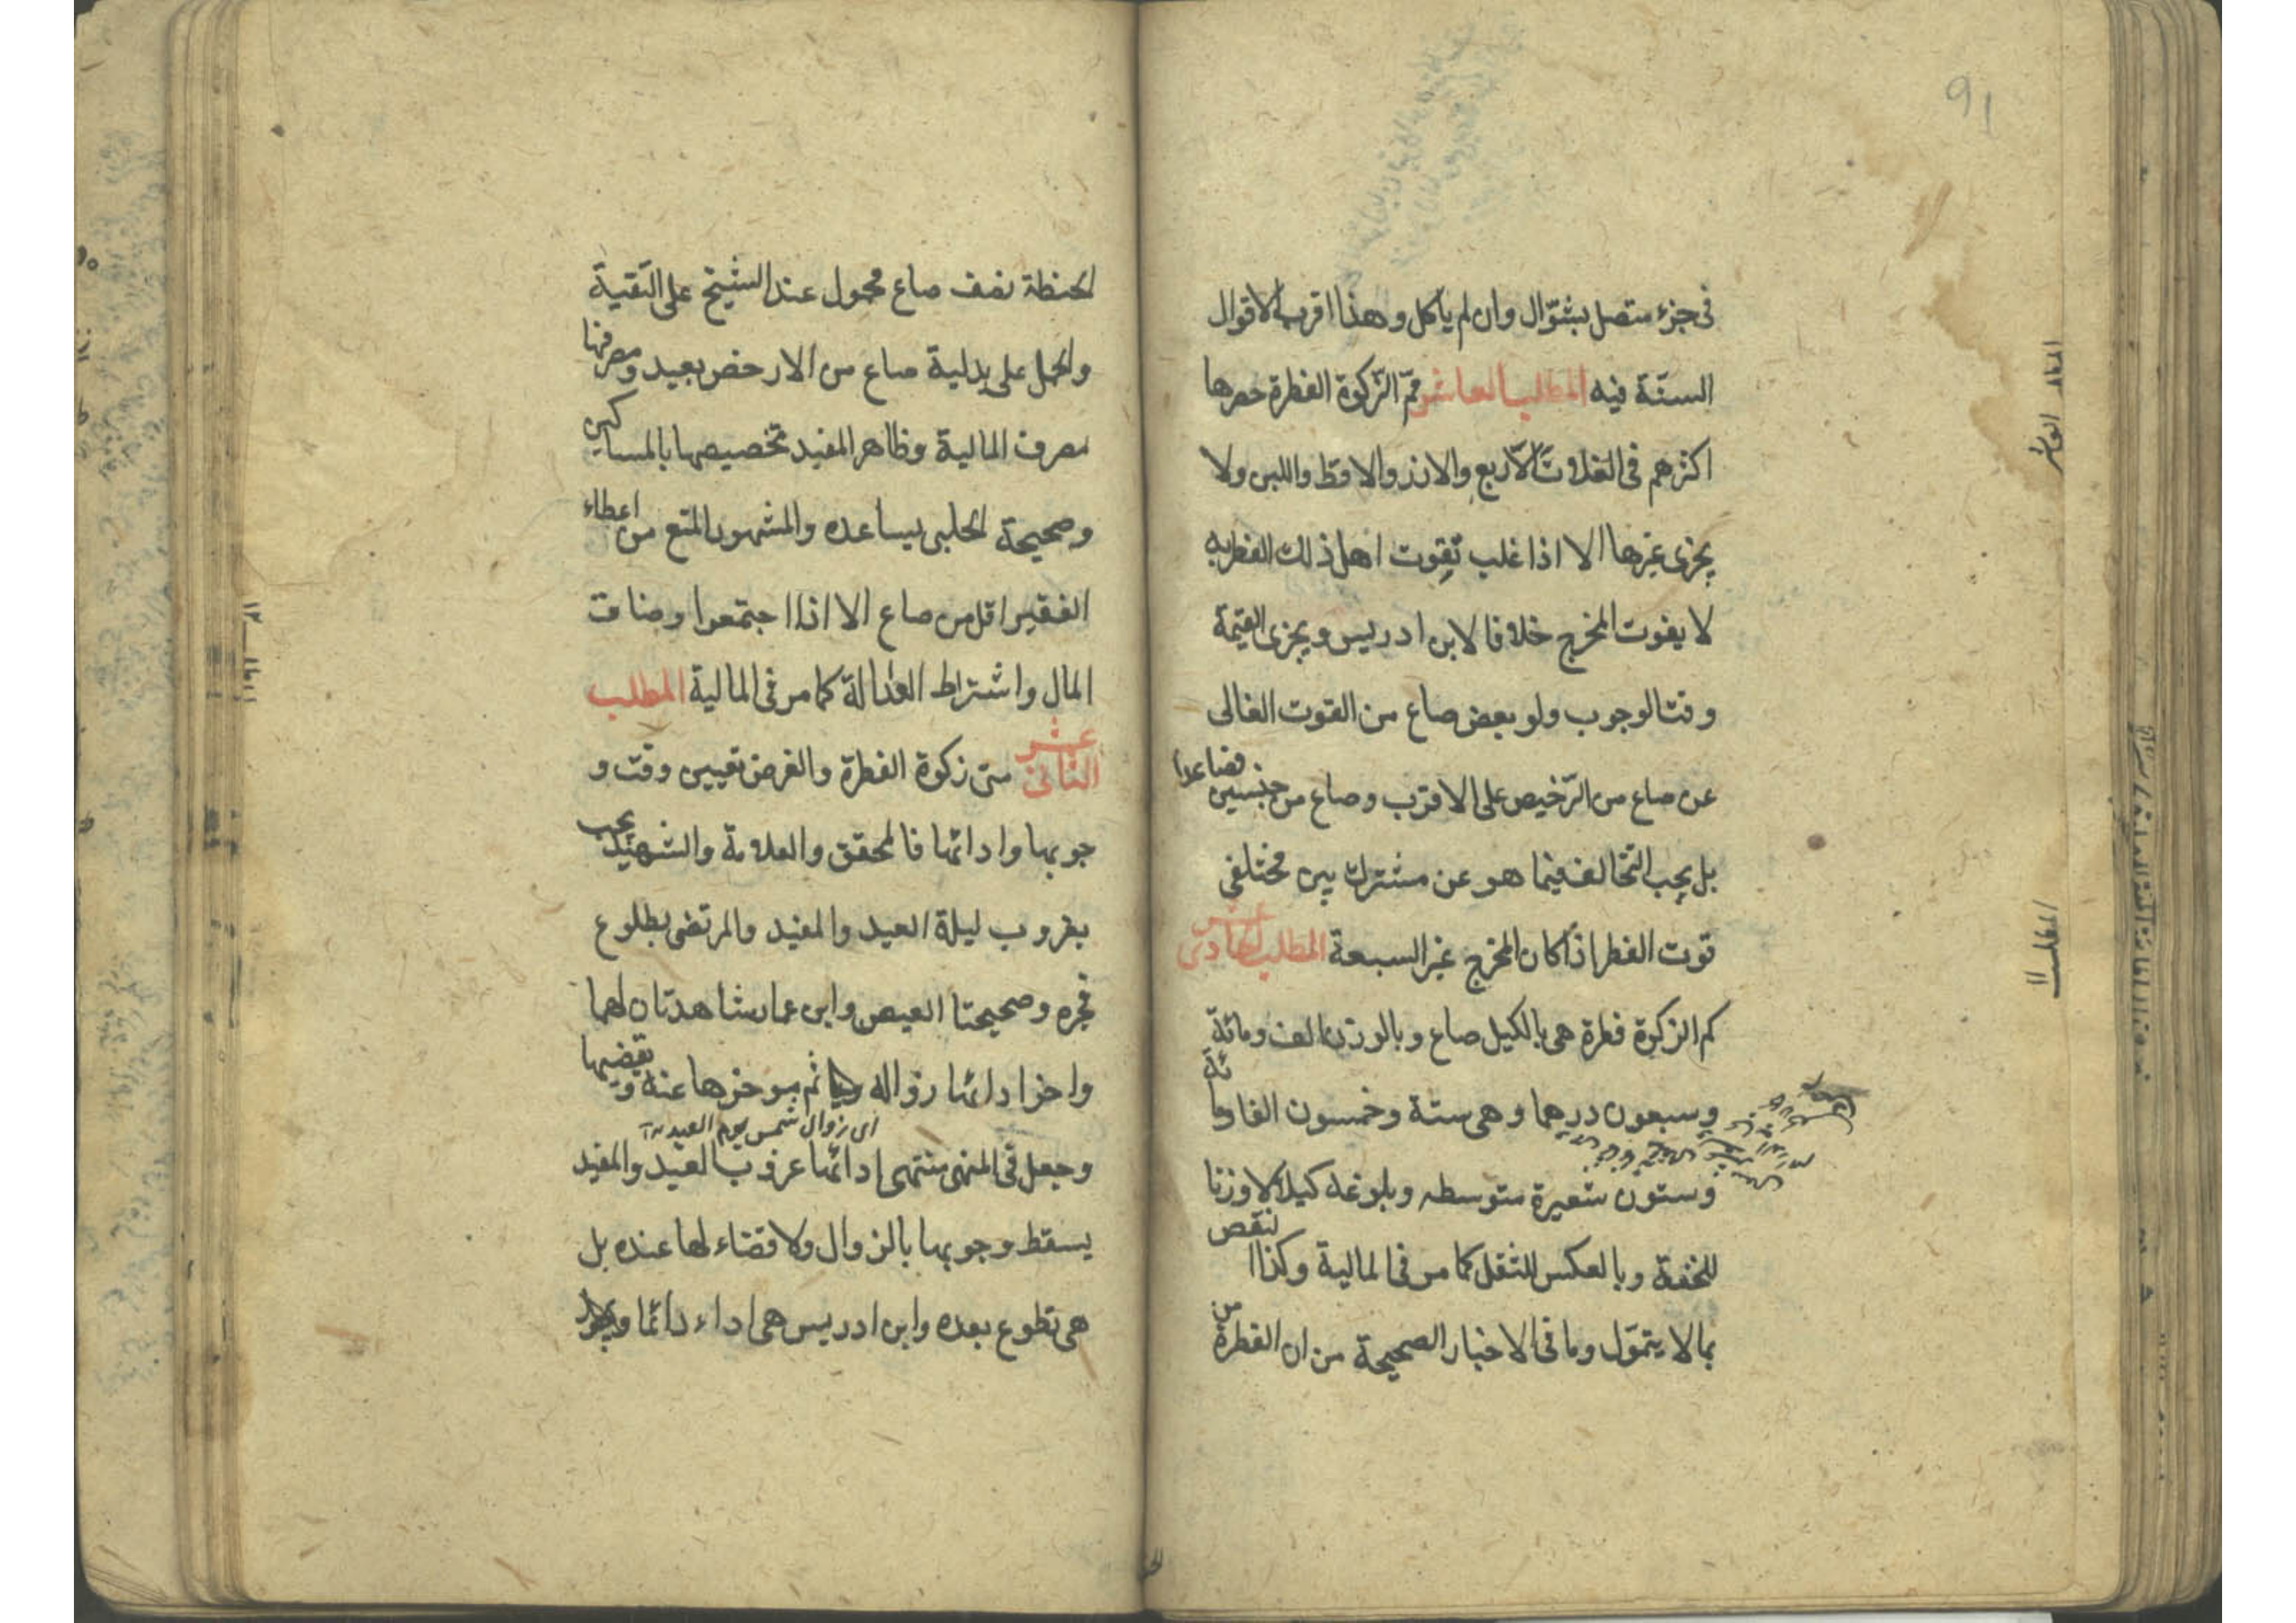 91
في جزء متصل بشوّال وان لم ياكل وهذا اقرب الاقوال
الستة فيه المطلب العاشر ممّ الزّكوة الفطرة حصرها
اكثرهم في الغلات الاربع والارز والاقط واللبن ولا
يجزى غيرها الا اذا غلب تقوت اهل ذلك القطر به
لا بقوت المخرج خلافا لابن ادريس ويجزى القيمة
وقت الوجوب ولو بعض صاع من القوت الغالى
عن صاع من الرّخيص على الاقرب وصاع من جنسين فصاعدا
بل يجب التخالف فيما هو عن مشترك بين مختلفى
قوت الفطر اذا كان المخرج غير السبعة المطلب الحادى عشر
كم الزكوة فطرة هى بالكيل صاع وبالوزن الف ومائة
وسبعون درهما وهى ستة وخمسون الفا ومائة
وستون شعيرة متوسطه وبلوغه كيلا لا وزنا
للخفة وبالعكس للثقل كما مر في المالية وكذا لنقص
بما لا يتموّل وما في الاخبار الصحيحة من ان الفطرة من
المطلب العاشر
المطلب ١١
الحنطة نصف صاع محمول عند الشيخ على التقية
والحمل على بدلية صاع من الارخص بعيد ومصرفها
مصرف المالية وظاهر المفيد تخصيصها بالمساكين
وصحيحة الحلبى يساعده والمشهور المنع من اعطاء
الفقير اقل من صاع الا اذا اجتمعوا وضاق
المال واشتراط العدالة كما مر في المالية المطلب
الثانى عشر متى زكوة الفطرة والغرض تعيين وقت و
جوبها وادائها فالمحقق والعلامة والشهيد يجب
بغروب ليلة العيد والمفيد والمرتضى بطلوع
فجره وصحيحتا العيص وابن عمار شاهدتان لهما
واخر ادائها زواله ثم مؤخرها عنه يقضيها
اى زوال شمس يوم العيد
وجعل في المنهى منتهى ادائها غروب العيد والمفيد
يسقط وجوبها بالزوال ولا قضاء لها عنده بل
هى تطوع بعده وابن ادريس هى اداء دائما